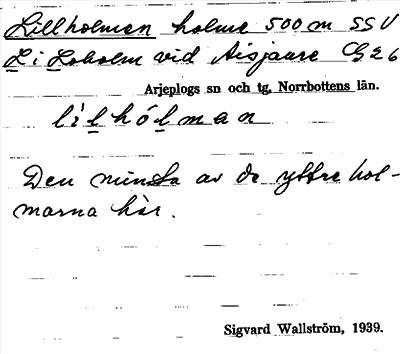 Lillholmen holme 500 m SSV
L i Loholm vid Aisjaure G26
Arjeplogs sn och tg, Norrbottens län.
lìlhólman
Den minsta av de yttre hol-
marna här.
Sigvard Wallström, 1939.